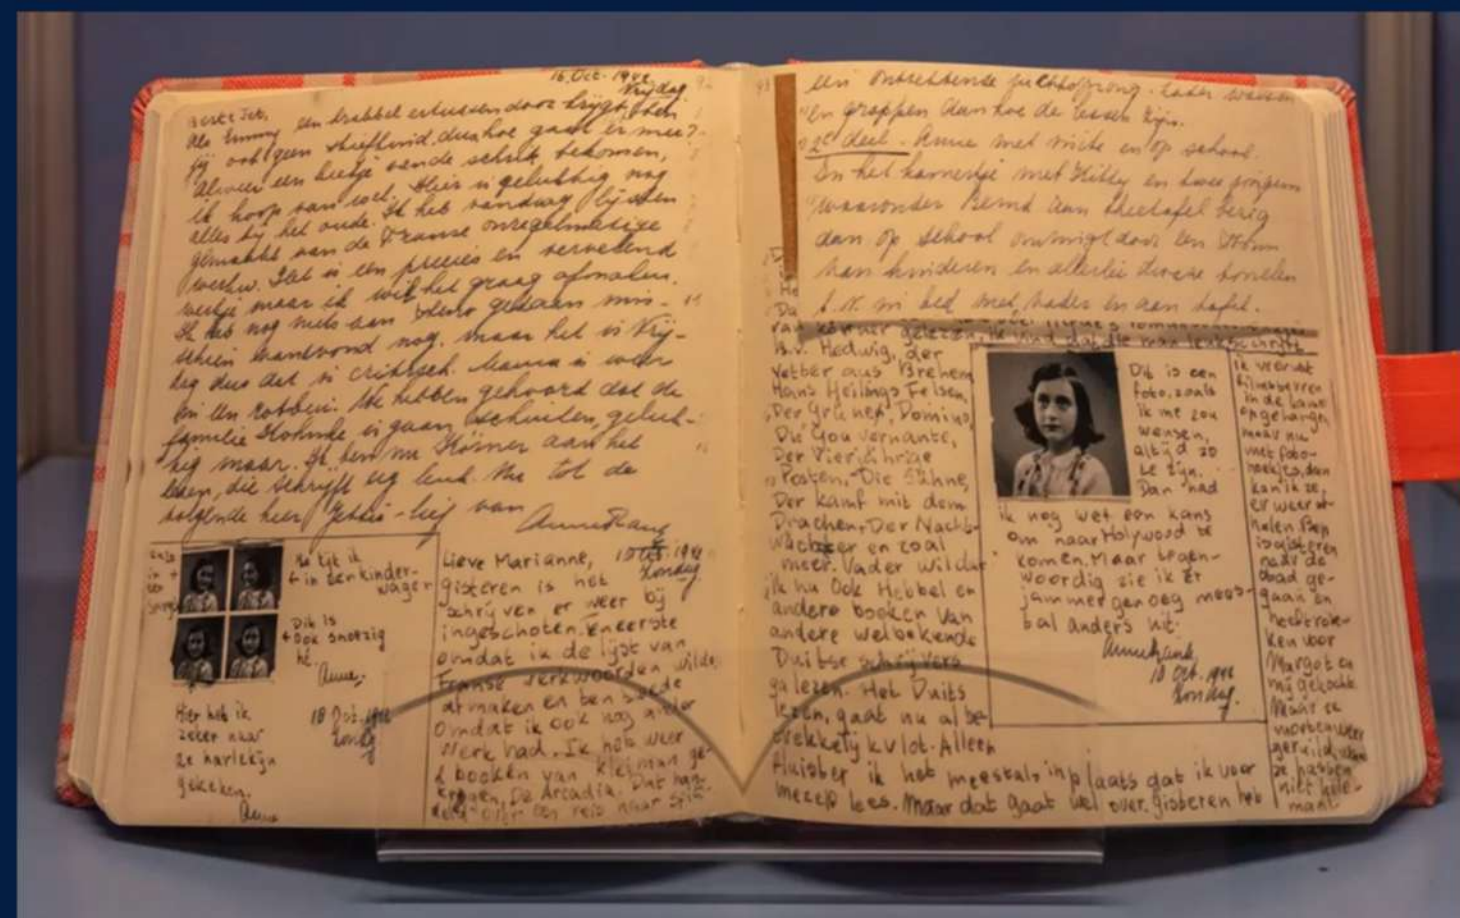 16. Oct. 1942
Vrijdag.
Beste Jet,
Als Emmy een krabbel ertussen door krijgt, ben
jij ook geen stiefkind, dus hoe gaat er mee?
Alweer een beetje van de schrik bekomen,
ik hoop van wel. Hier is gelukkig nog
alles bij het oude. Ik heb vandaag lijsten
gemaakt van de Franse onregelmatige
werkw. Het is een precies en vervelend
werkje maar ik wil het graag afmaken.
Ik heb nog niets aan steno gedaan mis-
schien vanavond nog, maar het is Vrij-
dag dus dat is critisch. Mama is weer
in een
We hebben gehoord dat de
familie is gaan schuilen, geluk-
kig maar. Ik ben nu Körner aan het
lezen, die schrijft erg leuk. Nu tot de
volgende keer Jettie-lief van
Anne Frank
in +
Ho kijk ik
in den kinder-
wagen
Dit is
ook snoezig
hè.
Anne.
Hier heb ik
zeker naar
de harlekijn
gekeken.
Anne
18 Oct. 1942
Zondag
Lieve Marianne,
Oct. 1942
Zondag
gisteren is het
schrijven er weer bij
ingeschoten. Eneerste
omdat ik de lijst van
Franse werkwoorden wilde
afmaken en ten
omdat ik ook nog ander
werk had. Ik heb weer
2 boeken van Kleiman ge-
kregen, De Arcadia. Dat han-
delt over een reis naar Spit-
een ontzettende luchtsprong. Later
en grappen dan hoe de lessen zijn.
2e deel. Anne met en op school.
In het kamertje met Kitty en twee jongens
waaronder Bernd aan theetafel bezig
dan op school omringd door een
van kinderen en allerlei
b.v. in bed met vader en aan tafel.
van Körner gelezen, ik vind dat die man leuk schrijft
B.v. Hedwig, der
Vetter aus Brehem
Hans Heilings Felsen,
Der Grünen, Domino,
Die Gouvernante,
Der Vierjährige
Posten, Die Sühne,
Der Kamf mit dem
Drachen, Der Nacht-
wächter en zoal
meer. Vader wil dat
ik nu ook Hebbel en
andere boeken van
andere welbekende
Duitse schrijvers
ga lezen. Het Duits
lezen, gaat nu al be-
trekkelijk vlot. Alleen
fluister ik het meestal inplaats dat ik voor
mezelf lees. Maar dat gaat wel over. gisteren heb
Dit is een
foto, zoals
ik me zou
wensen,
altijd zo
te zijn.
Dan had
ik nog wel een kans
om naar Holywood te
komen. Maar tegen-
woordig zie ik er
jammer genoeg mees-
tal anders uit.
Anne Frank
18 Oct. 1942
Zondag.
ik vooraf
filmsterren
in de kamer
opgehangen
maar nu
met foto-
hoekjes, dan
kan ik ze
er weer af-
halen. Bep
is gisteren
naar de
stad ge-
gaan en
heeft rok-
ken voor
Margot en
mij gekocht
Maar ze
moeten weer
geruild,
ze pasten
niet hele-
maal.